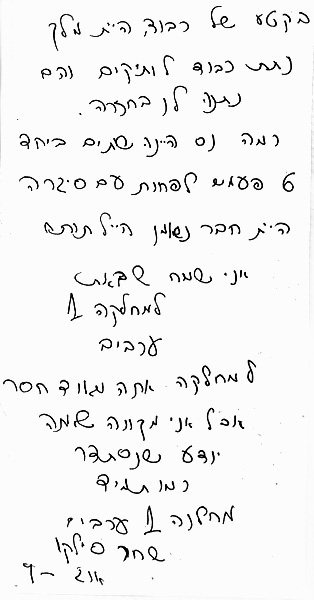 בקטע של כבוד, היית מלך
נתת כבוד לותיקים והם
נתנו לך בחזרה.
כמה נס היינו שתים ביחד
6 פעמים לפחות עם סיגריה
היית חבר נאמן הייל תותח
אני שמח שבאת
למחלקה 1
ערבים
למחלקה אתה מאוד חסר
אבל אני מקווה שאתה
יודע שנסתדר
כמו תמיד
מחלקה 1 ערבים
שחר סילקו